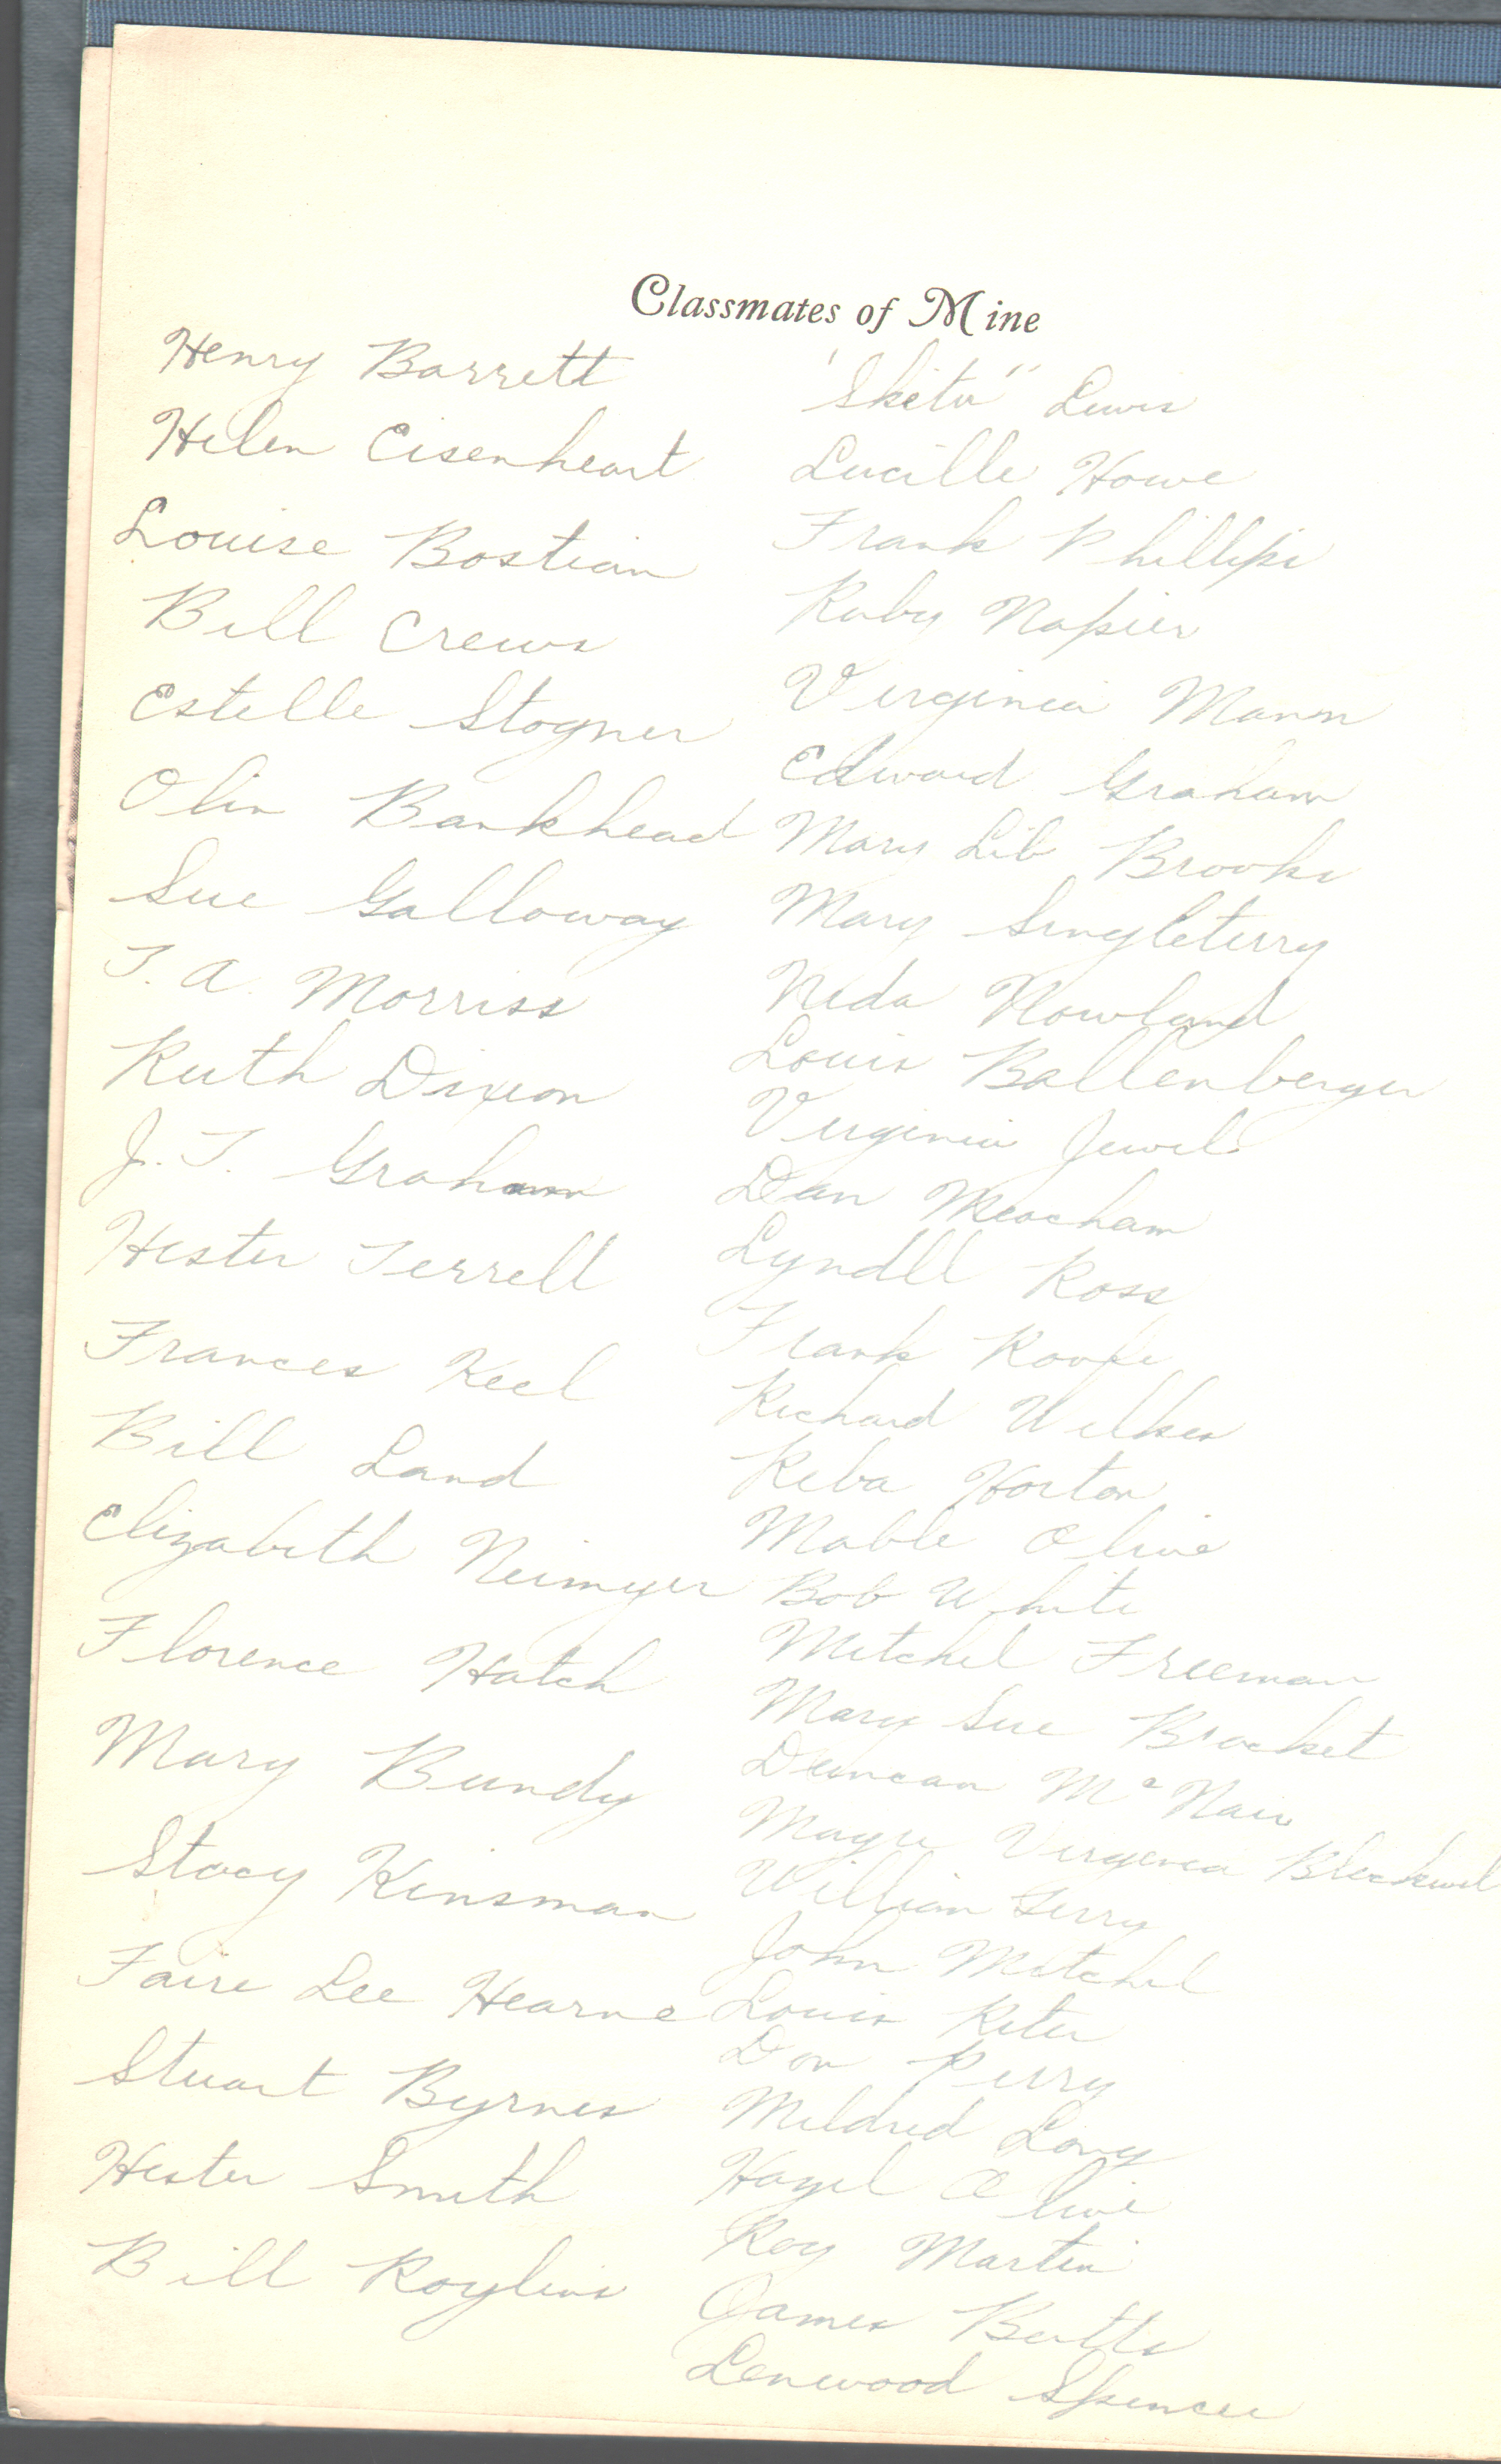 Classmates of Mine
Henry Barrett
Helen Eisenheart
Louise Bostian
Bill Crews
Estelle Stogner
Olin Bankhead
Sue Galloway
T. A. Morriss
Ruth Dixon
J. T. Graham
Hester Terrell
Frances Keel
Bill Land
Elizabeth Neimyer
Florence Hatch
Mary Bundy
Stacy Kinsman
Faire Lee Hearne
Stuart Byrnes
Hester Smith
Bill Roylins
"Sketer" Lewis
Lucille Howe
Frank Phillips
Ruby Napier
Virginia Mann
Edward Graham
Mary Lib Brooks
Mary Singleterry
Neda Nowland
Louis Ballenberger
Virginia Jewel
Dan Meacham
Lyndll Ross
Frank Roofe
Richard Wilkes
Reba Horton
Mable Olive
Bob White
Mitchel Freeman
Mary Sue Brocket
Duncan McNair
Virginia
William Terry
John Mitchel
Louis
Don Perry
Mildred Long
Hazel Olive
Roy Martin
James Betts
Lenwood Spencer